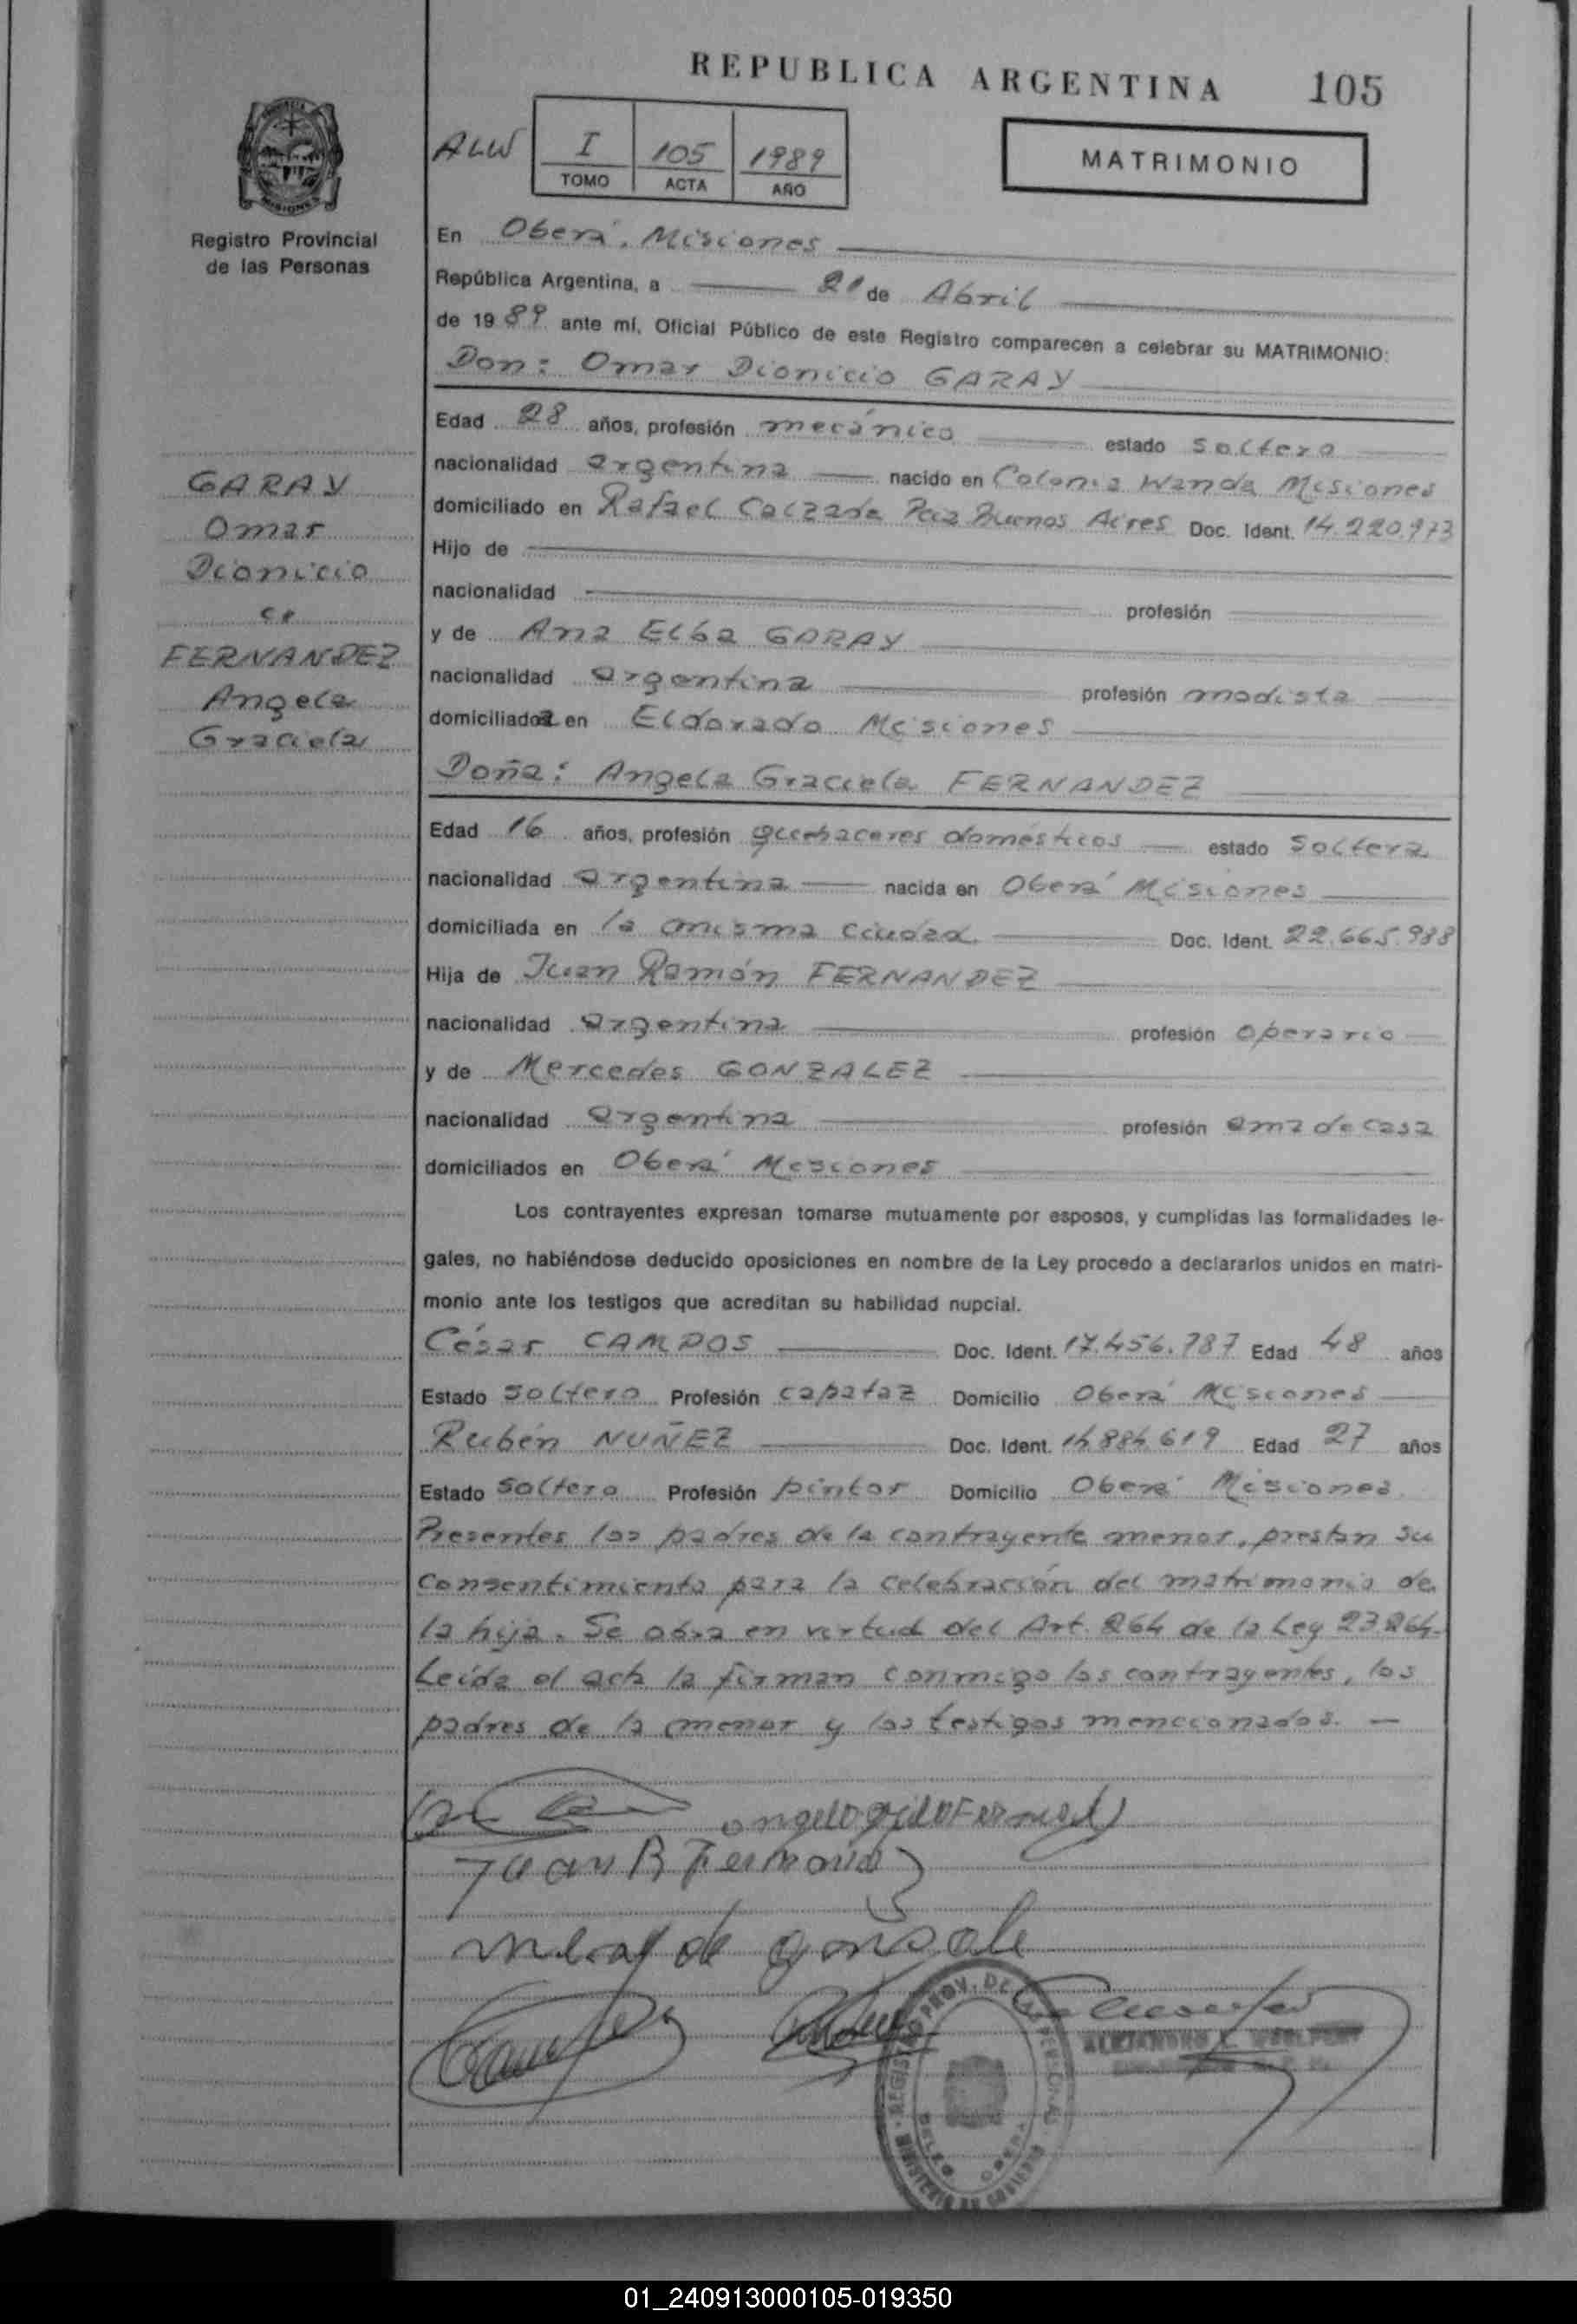 REPUBLICA ARGENTINA 105
ALW
I
TOMO
105
ACTA
1989
AÑO
MATRIMONIO
Registro Provincial
de las Personas
GARAY
Omar
Dionicio
c/
FERNANDEZ
Angela
Graciela
En Oberá, Misiones
República Argentina, a 21 de Abril
de 1989 ante mí, Oficial Público de este Registro comparecen a celebrar su MATRIMONIO:
Don: Omar Dionicio GARAY
Edad 28 años, profesión mecánico estado Soltero
nacionalidad argentina nacido en Colonia Wanda Misiones
domiciliado en Rafael Calzada Pcia Buenos Aires Doc. Ident. 14.220.973
Hijo de
nacionalidad profesión
y de Ana Elba GARAY
nacionalidad argentina profesión modista
domiciliada en Eldorado Misiones
Doña: Angela Graciela FERNANDEZ
Edad 16 años, profesión quehaceres domésticos estado Soltera
nacionalidad argentina nacida en Oberá Misiones
domiciliada en la misma ciudad. Doc. Ident. 22.665.988
Hija de Juan Ramón FERNANDEZ
nacionalidad argentina profesión operario
y de Mercedes GONZALEZ
nacionalidad argentina profesión ama de casa
domiciliados en Oberá Misiones
Los contrayentes expresan tomarse mutuamente por esposos, y cumplidas las formalidades le-
gales, no habiéndose deducido oposiciones en nombre de la Ley procedo a declararlos unidos en matri-
monio ante los testigos que acreditan su habilidad nupcial.
César CAMPOS Doc. Ident. 17.456.787 Edad 48 años
Estado Soltero Profesión capataz Domicilio Oberá Misiones
Rubén NUÑEZ Doc. Ident. 14.884.619 Edad 27 años
Estado Soltero Profesión pintor Domicilio Oberá Misiones
Presentes los padres de la contrayente menor, prestan su
consentimiento para la celebración del matrimonio de
la hija. Se obra en virtud del Art. 264 de la Ley 23.264-
Leída el acta la firman conmigo los contrayentes, los
padres de la menor y los testigos mencionados. —
Juan R Fernandez
de gonsale
REGISTRO PROV. DE LAS PERSONAS
MINISTERIO DE GOBIERNO
01_240913000105-019350